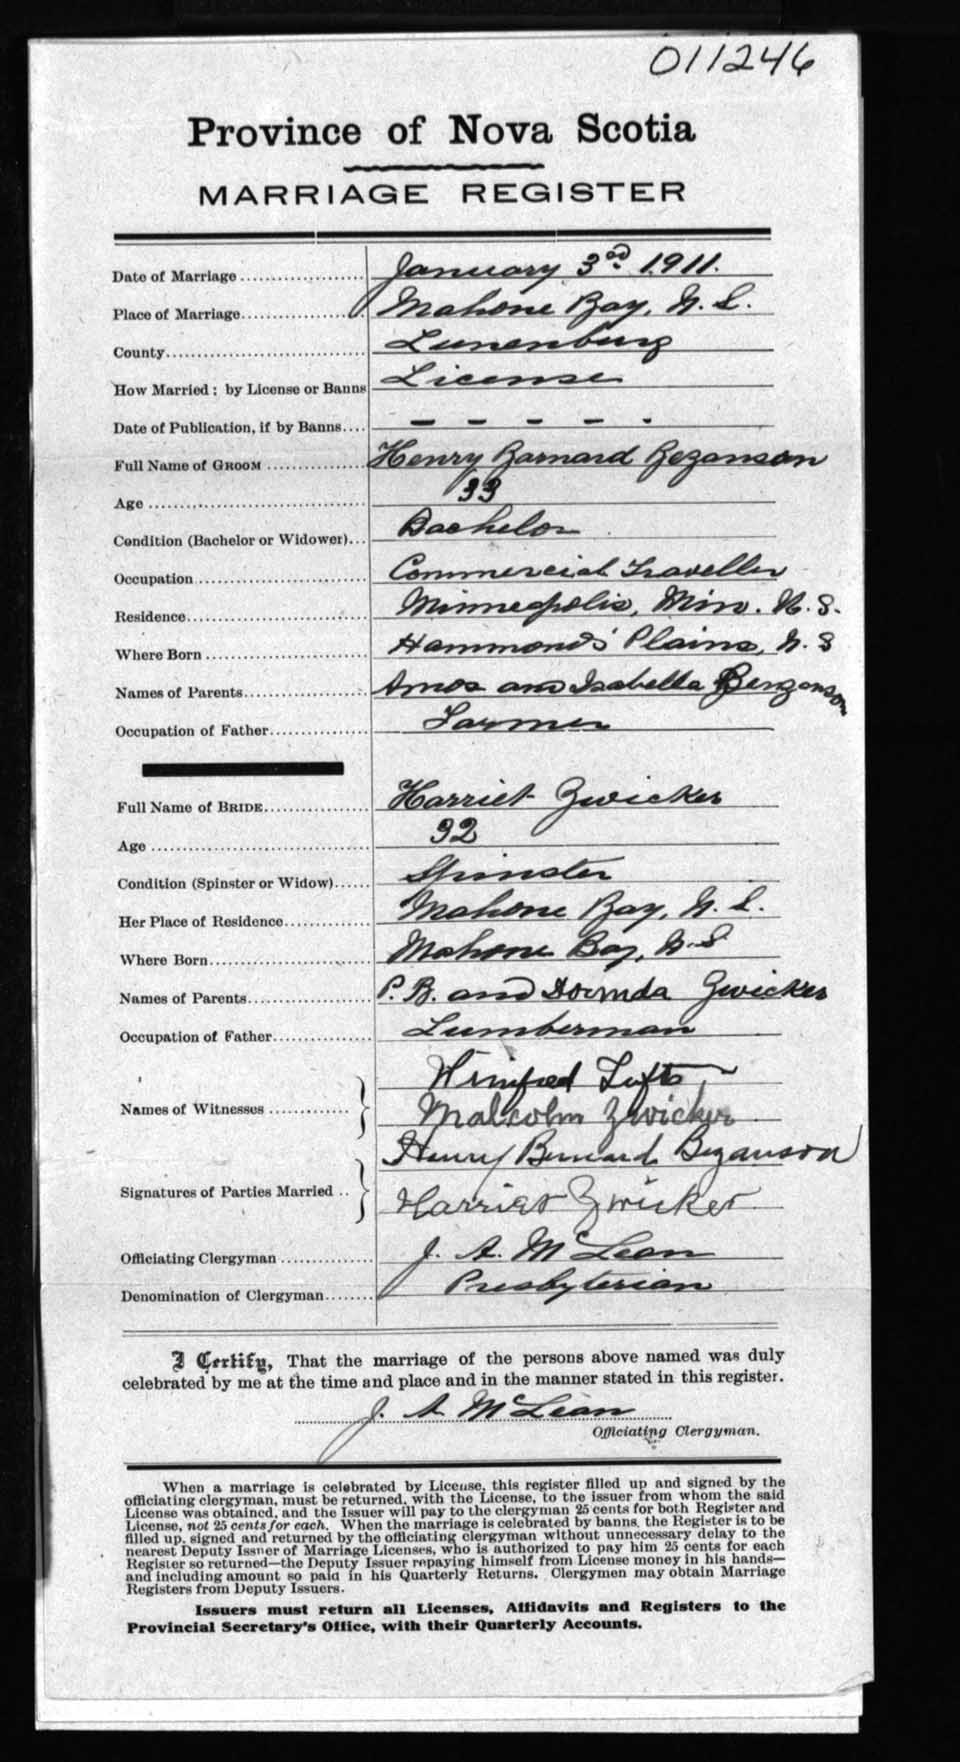 011246
Province of Nova Scotia
MARRIAGE REGISTER
Date of Marriage .................... January 3rd 1911.
Place of Marriage.................... Mahone Bay, N. S.
County.................... Lunenburg
How Married; by License or Banns License
Date of Publication, if by Banns.... - - - - -
Full Name of GROOM .................... Henry Barnard Bezanson
Age .................... 33
Condition (Bachelor or Widower)... Bachelor
Occupation.................... Commercial Traveller
Residence.................... Minneapolis, Min. U. S.
Where Born .................... Hammonds' Plains, N. S
Names of Parents.................... Amos and Isabella Bezanson
Occupation of Father.................... Farmer
Full Name of BRIDE.................... Harriet Zwicker
Age .................... 32
Condition (Spinster or Widow)...... Spinster
Her Place of Residence.............. Mahone Bay, N. S.
Where Born.................... Mahone Bay, N. S
Names of Parents.................... P. B. and Zwicker
Occupation of Father.................... Lumberman
Names of Witnesses ............. Winifred Tufts,
Malcolm Zwicker
Signatures of Parties Married .. Henry Bernard Bezanson
Harriet Zwicker
Officiating Clergyman ............... J. A. McLean
Denomination of Clergyman........ Presbyterian
I Certify, That the marriage of the persons above named was duly
celebrated by me at the time and place and in the manner stated in this register.
J. A. McLean
Officiating Clergyman.
When a marriage is celebrated by License, this register filled up and signed by the
officiating clergyman, must be returned, with the License, to the issuer from whom the said
License was obtained, and the Issuer will pay to the clergyman 25 cents for both Register and
License, not 25 cents for each. When the marriage is celebrated by banns, the Register is to be
filled up, signed and returned by the officiating clergyman without unnecessary delay to the
nearest Deputy Issuer of Marriage Licenses, who is authorized to pay him 25 cents for each
Register so returned—the Deputy Issuer repaying himself from License money in his hands—
and including amount so paid in his Quarterly Returns. Clergymen may obtain Marriage
Registers from Deputy Issuers.
Issuers must return all Licenses, Affidavits and Registers to the
Provincial Secretary's Office, with their Quarterly Accounts.